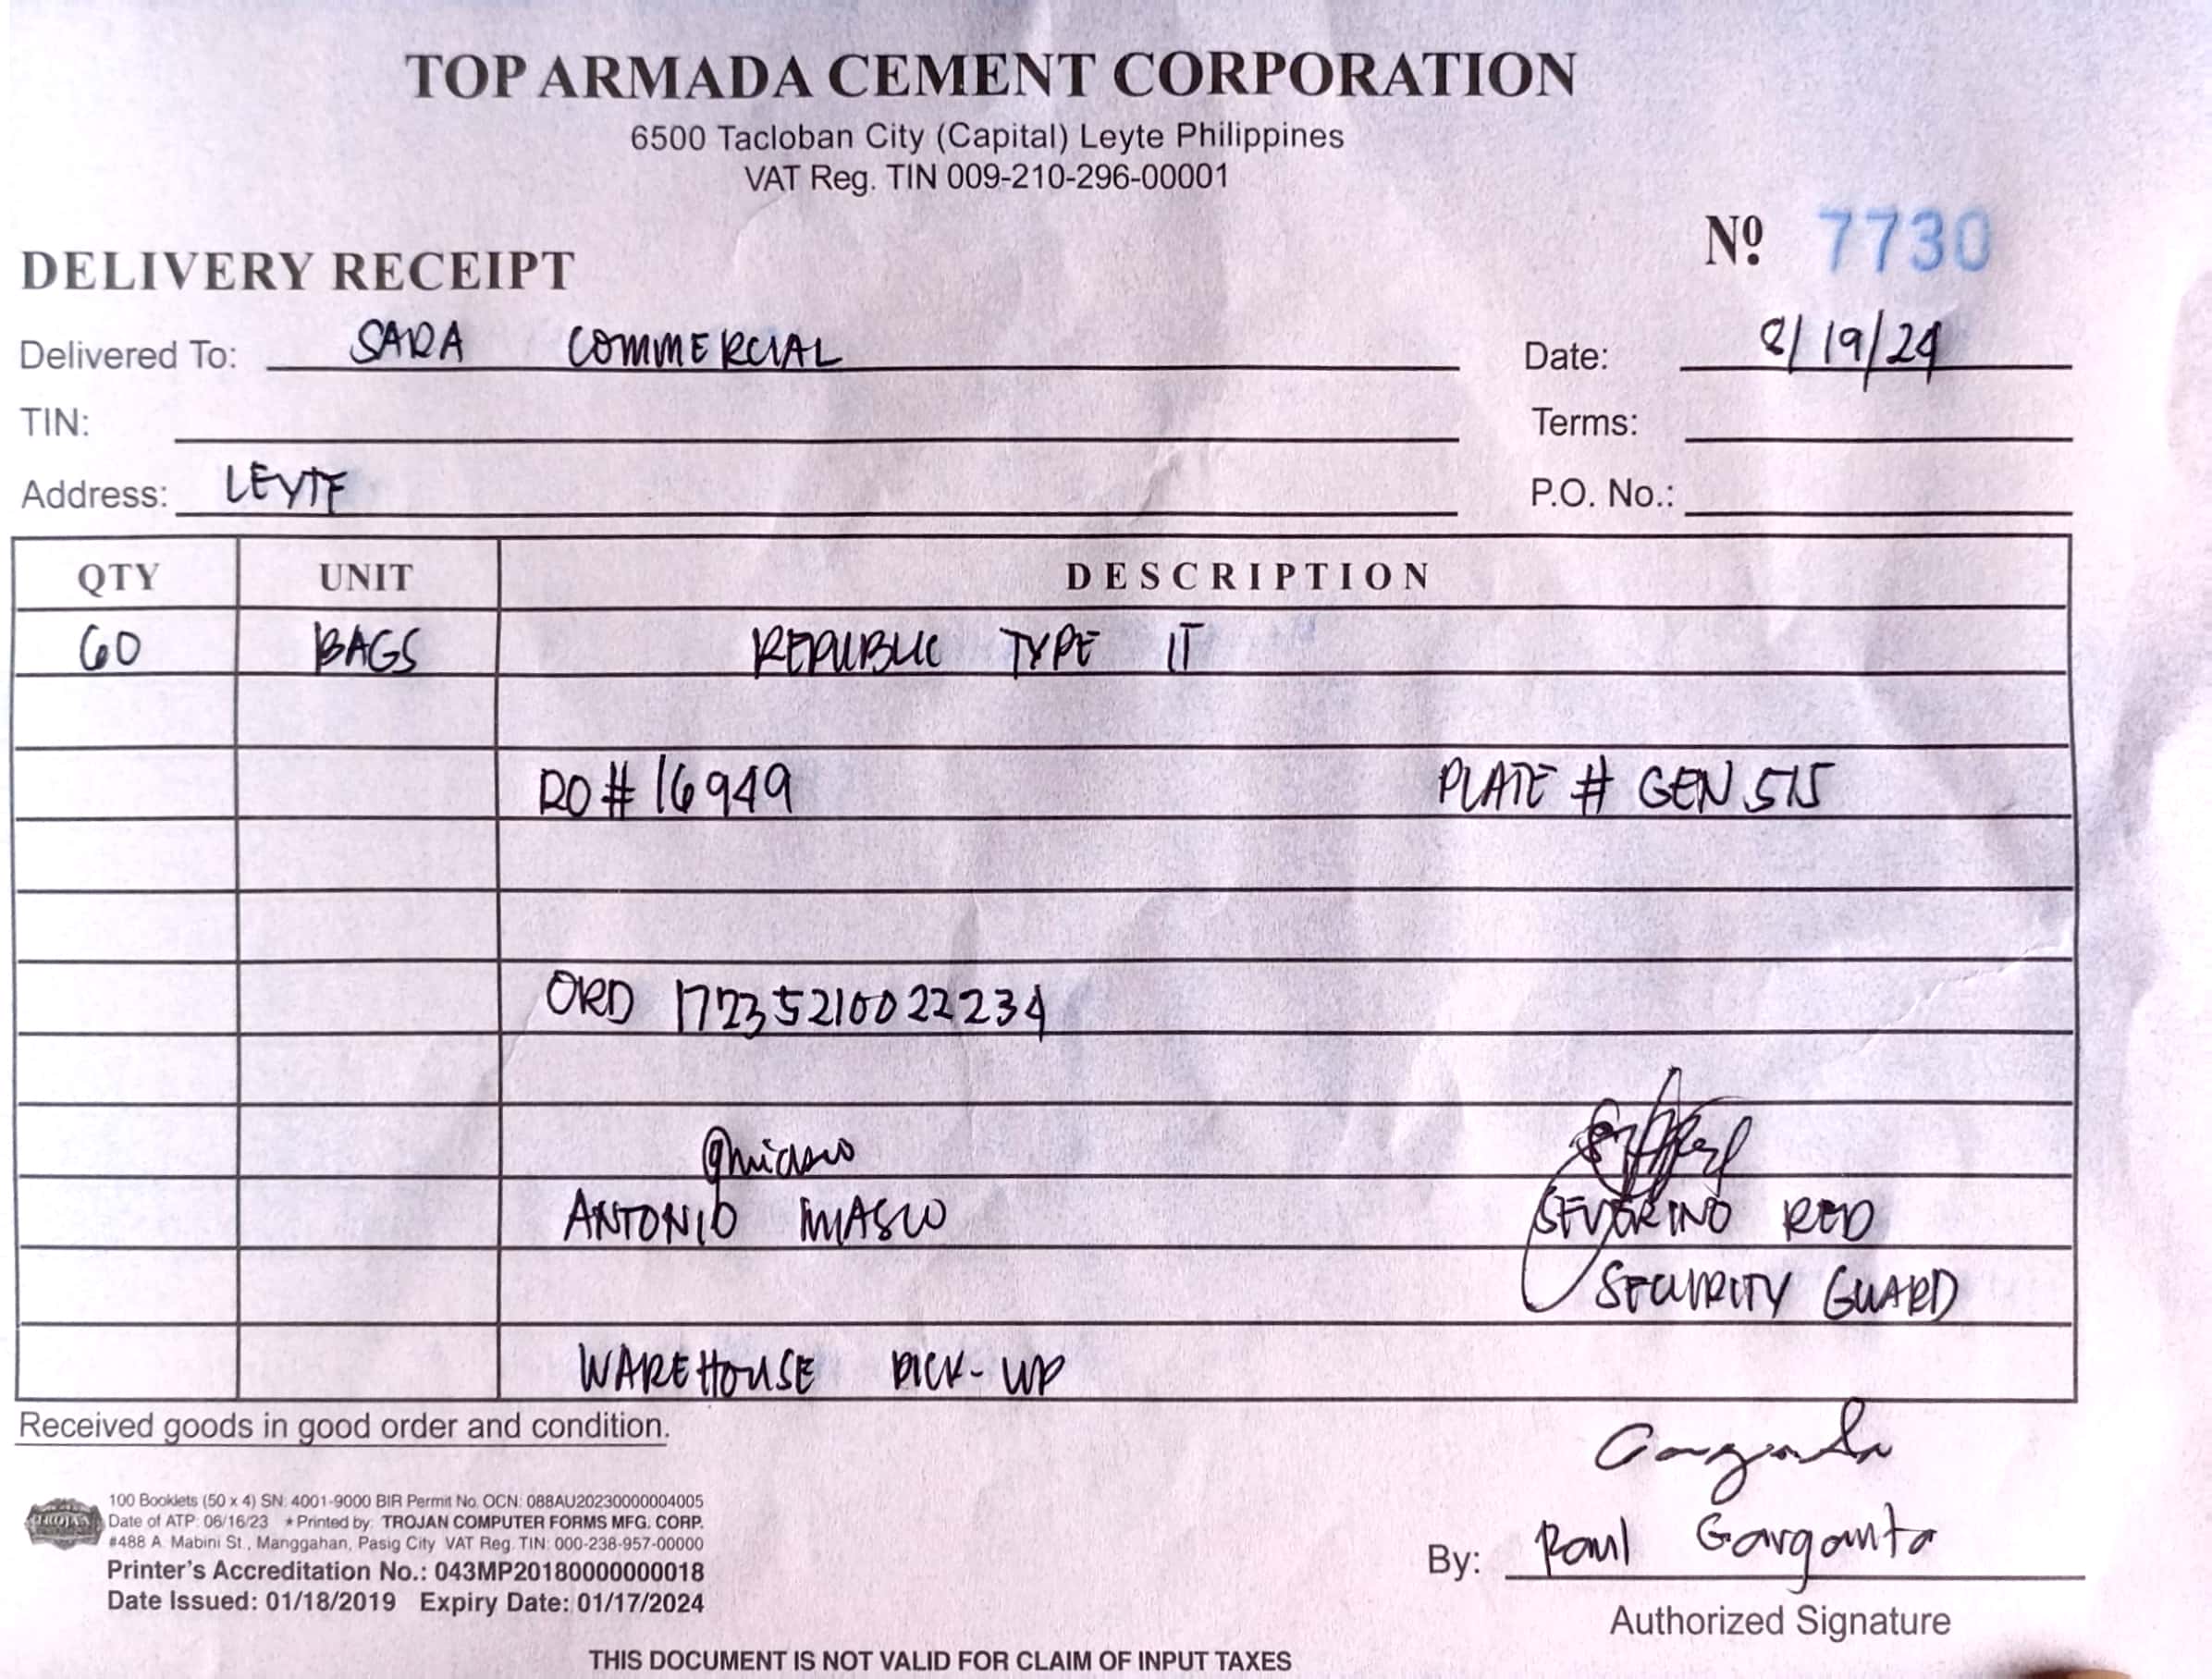 TOP ARMADA CEMENT CORPORATION
6500 Tacloban City (Capital) Leyte Philippines
VAT Reg. TIN 009-210-296-00001
Nº 7730
DELIVERY RECEIPT
Delivered To: SARA COMMERCIAL Date: 8/19/24
TIN: Terms:
Address: LEYTE P.O. No.:
QTY UNIT DESCRIPTION
60 BAGS REPUBLIC TYPE 1T
RO# 16949 PLATE # GEN 515
ORD 17235210022234
ANTONIO
SEVERINO RED
SECURITY GUARD
WAREHOUSE PICK-UP
Received goods in good order and condition.
TROJAN
100 Booklets (50 x 4) SN: 4001-9000 BIR Permit No. OCN: 088AU20230000004005
Date of ATP: 06/16/23 ★Printed by: TROJAN COMPUTER FORMS MFG. CORP.
#488 A. Mabini St., Manggahan, Pasig City VAT Reg. TIN: 000-238-957-00000
Printer's Accreditation No.: 043MP20180000000018
Date Issued: 01/18/2019 Expiry Date: 01/17/2024
By: Raul Garganta
Authorized Signature
THIS DOCUMENT IS NOT VALID FOR CLAIM OF INPUT TAXES